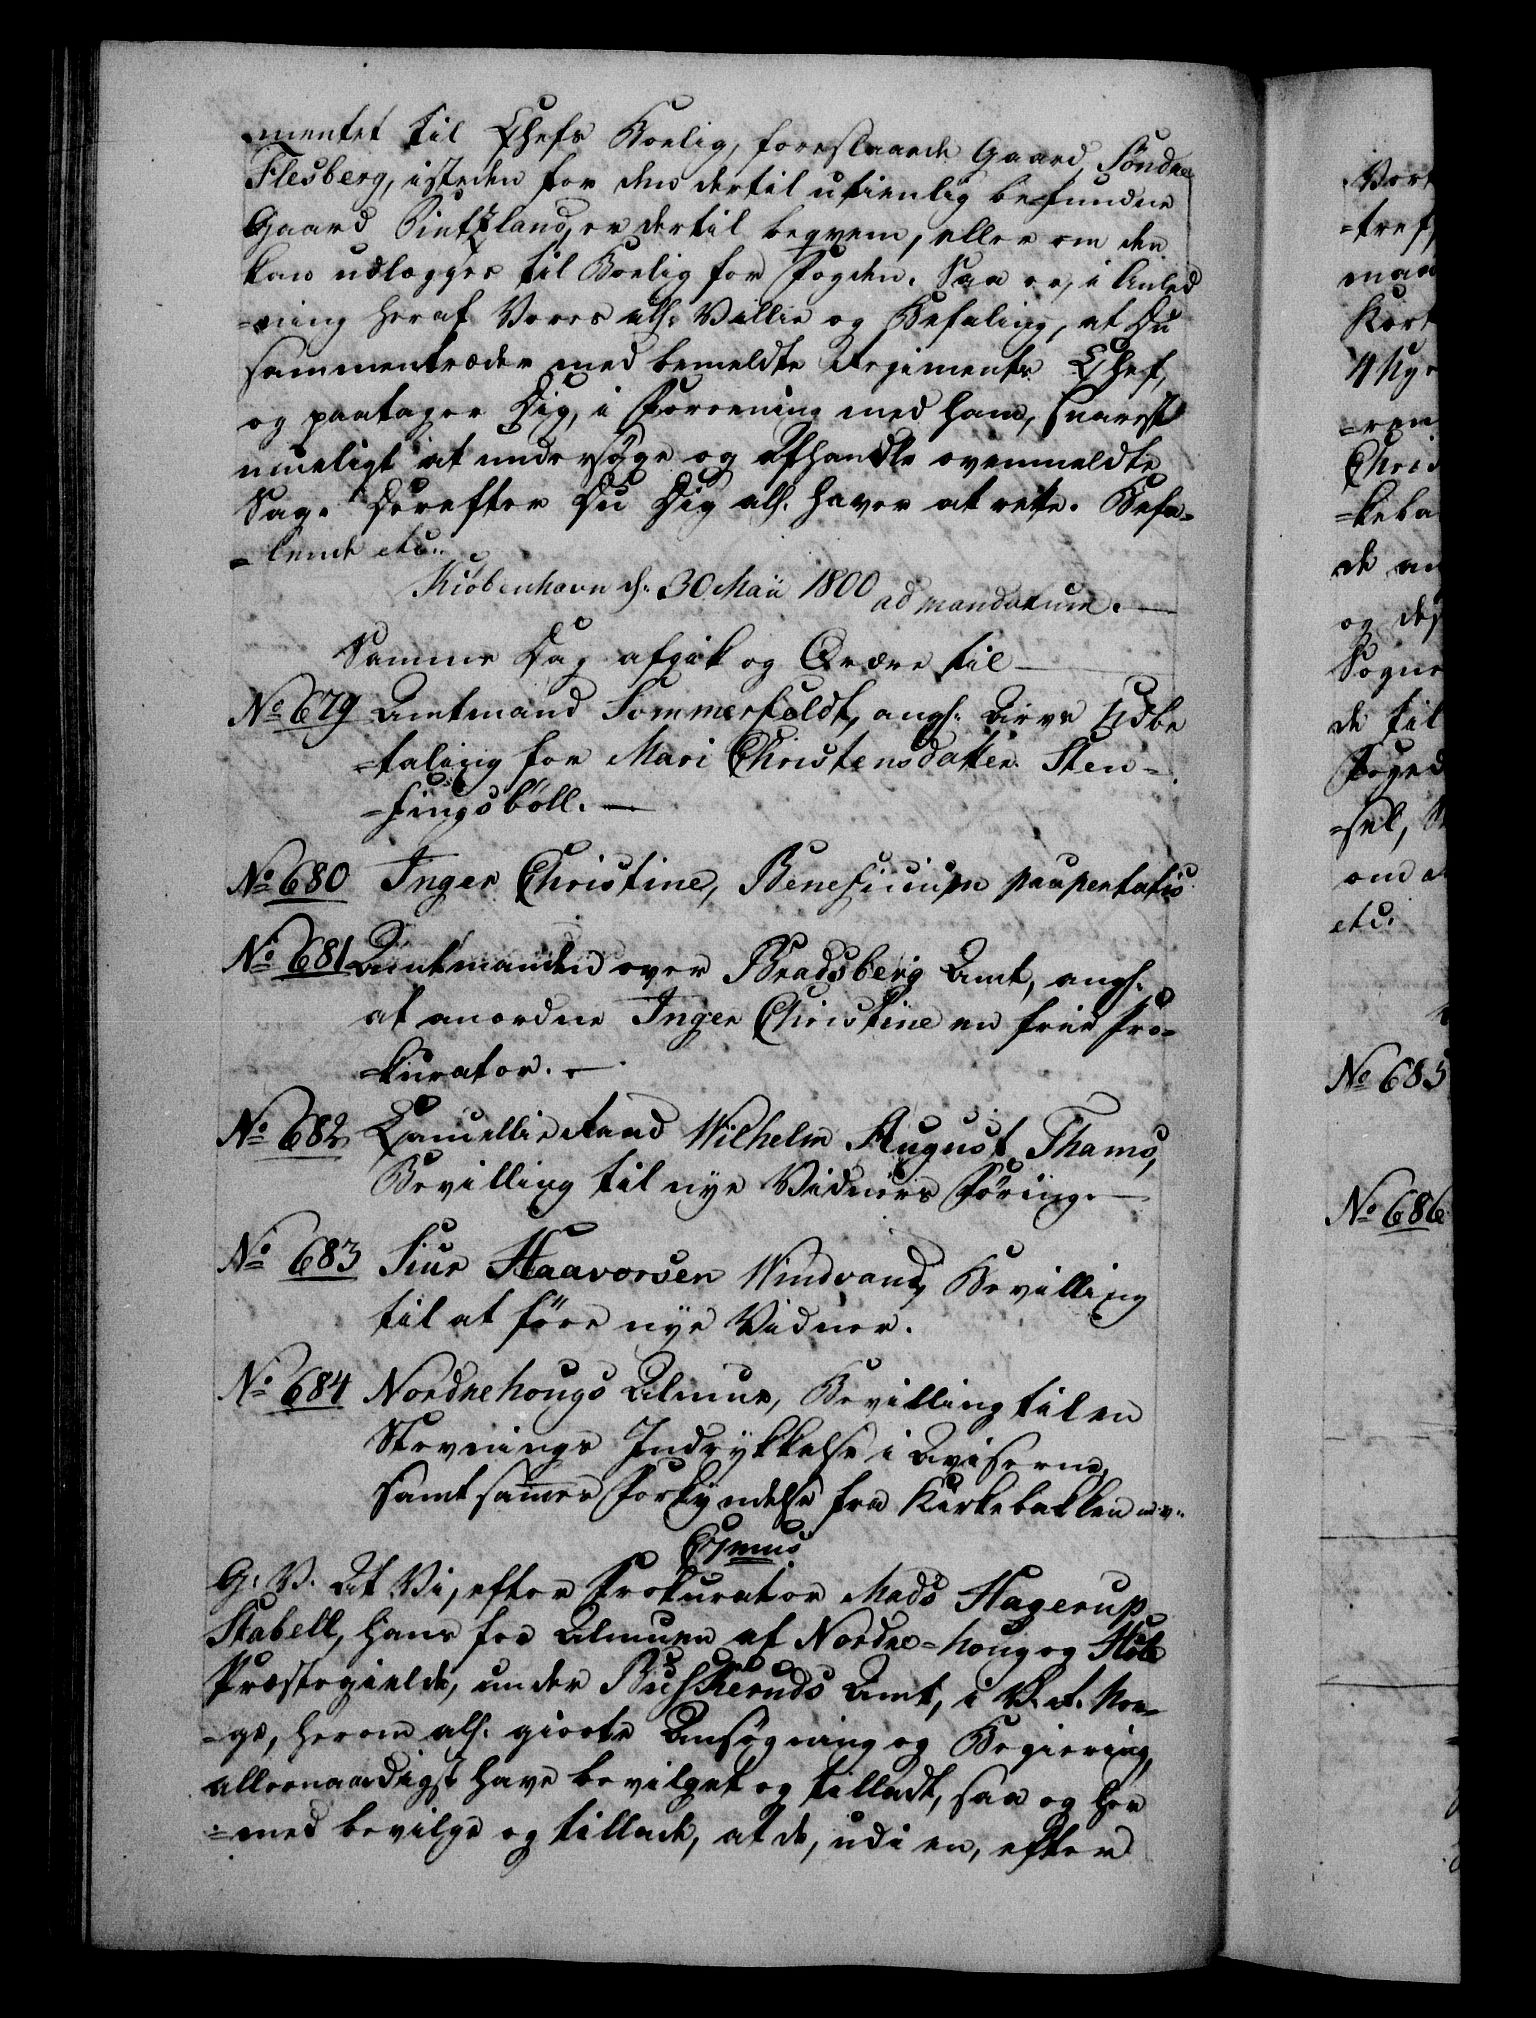 mentet til Chefs Boelig, foreslaaede Gaard Söndre
Flesberg, isteden for den dertil utienlig befundne
Gaard Giutzland, er dertil beqvem, eller om den
kan udlægges til Boelig for Fogden. Saa er, i Anled
=ning heraf Vores alh: Villie og Befaling, at Du
sammentræder med bemeldte Regiments Chef,
og paatager Dig, i Forening med ham, snarest
mueligt at undersøge og afhandle ovenmeldte
Sag. Derefter Du Dig alh. haver at rette. Befa=
=lende etc:
Kiöbenhavn d: 30 Maii 1800 ad mandatum.
Samme Dag afgik og Ordre til
No 679 Amtmand Sommerfeldt, angl: Arve Udbe
=taling for Mari Christensdatter Sten=
=fingsböll.
No 680 Inger Christine, Beneficium paupertatis
No 681 Amtmanden over Bradsberg Amt, angl:
at anordne Inger Christine en frie Pro=
=kurator.
No 682 Cancellieraad Wilhelm August Thams,
Bevilling til nye Vidners Föring.
No 683 Siur Haavorsen Windvand, Bevilling
til at före nye Vidner.
No 684 Nordrehougs Almue, Bevilling til en
Stevnings Indrykkelse i Aviserne,
samt sammes Forkyndelse fra Kirkebakken m:v:
G: V. At Vi, efter Prokurator Mads Hagerup
Stabell, hans for Almuen af Nordre=houg og Hole
Præstegield, under Buskeruds Amt, i V. R. Nor=
=ge, herom alh: giorte Ansøgning og Begiering,
allernaadigst have bevilget og tilladt, saa og her
=med bevilge og tillade, at de, udi en, efter
No 685
No 686